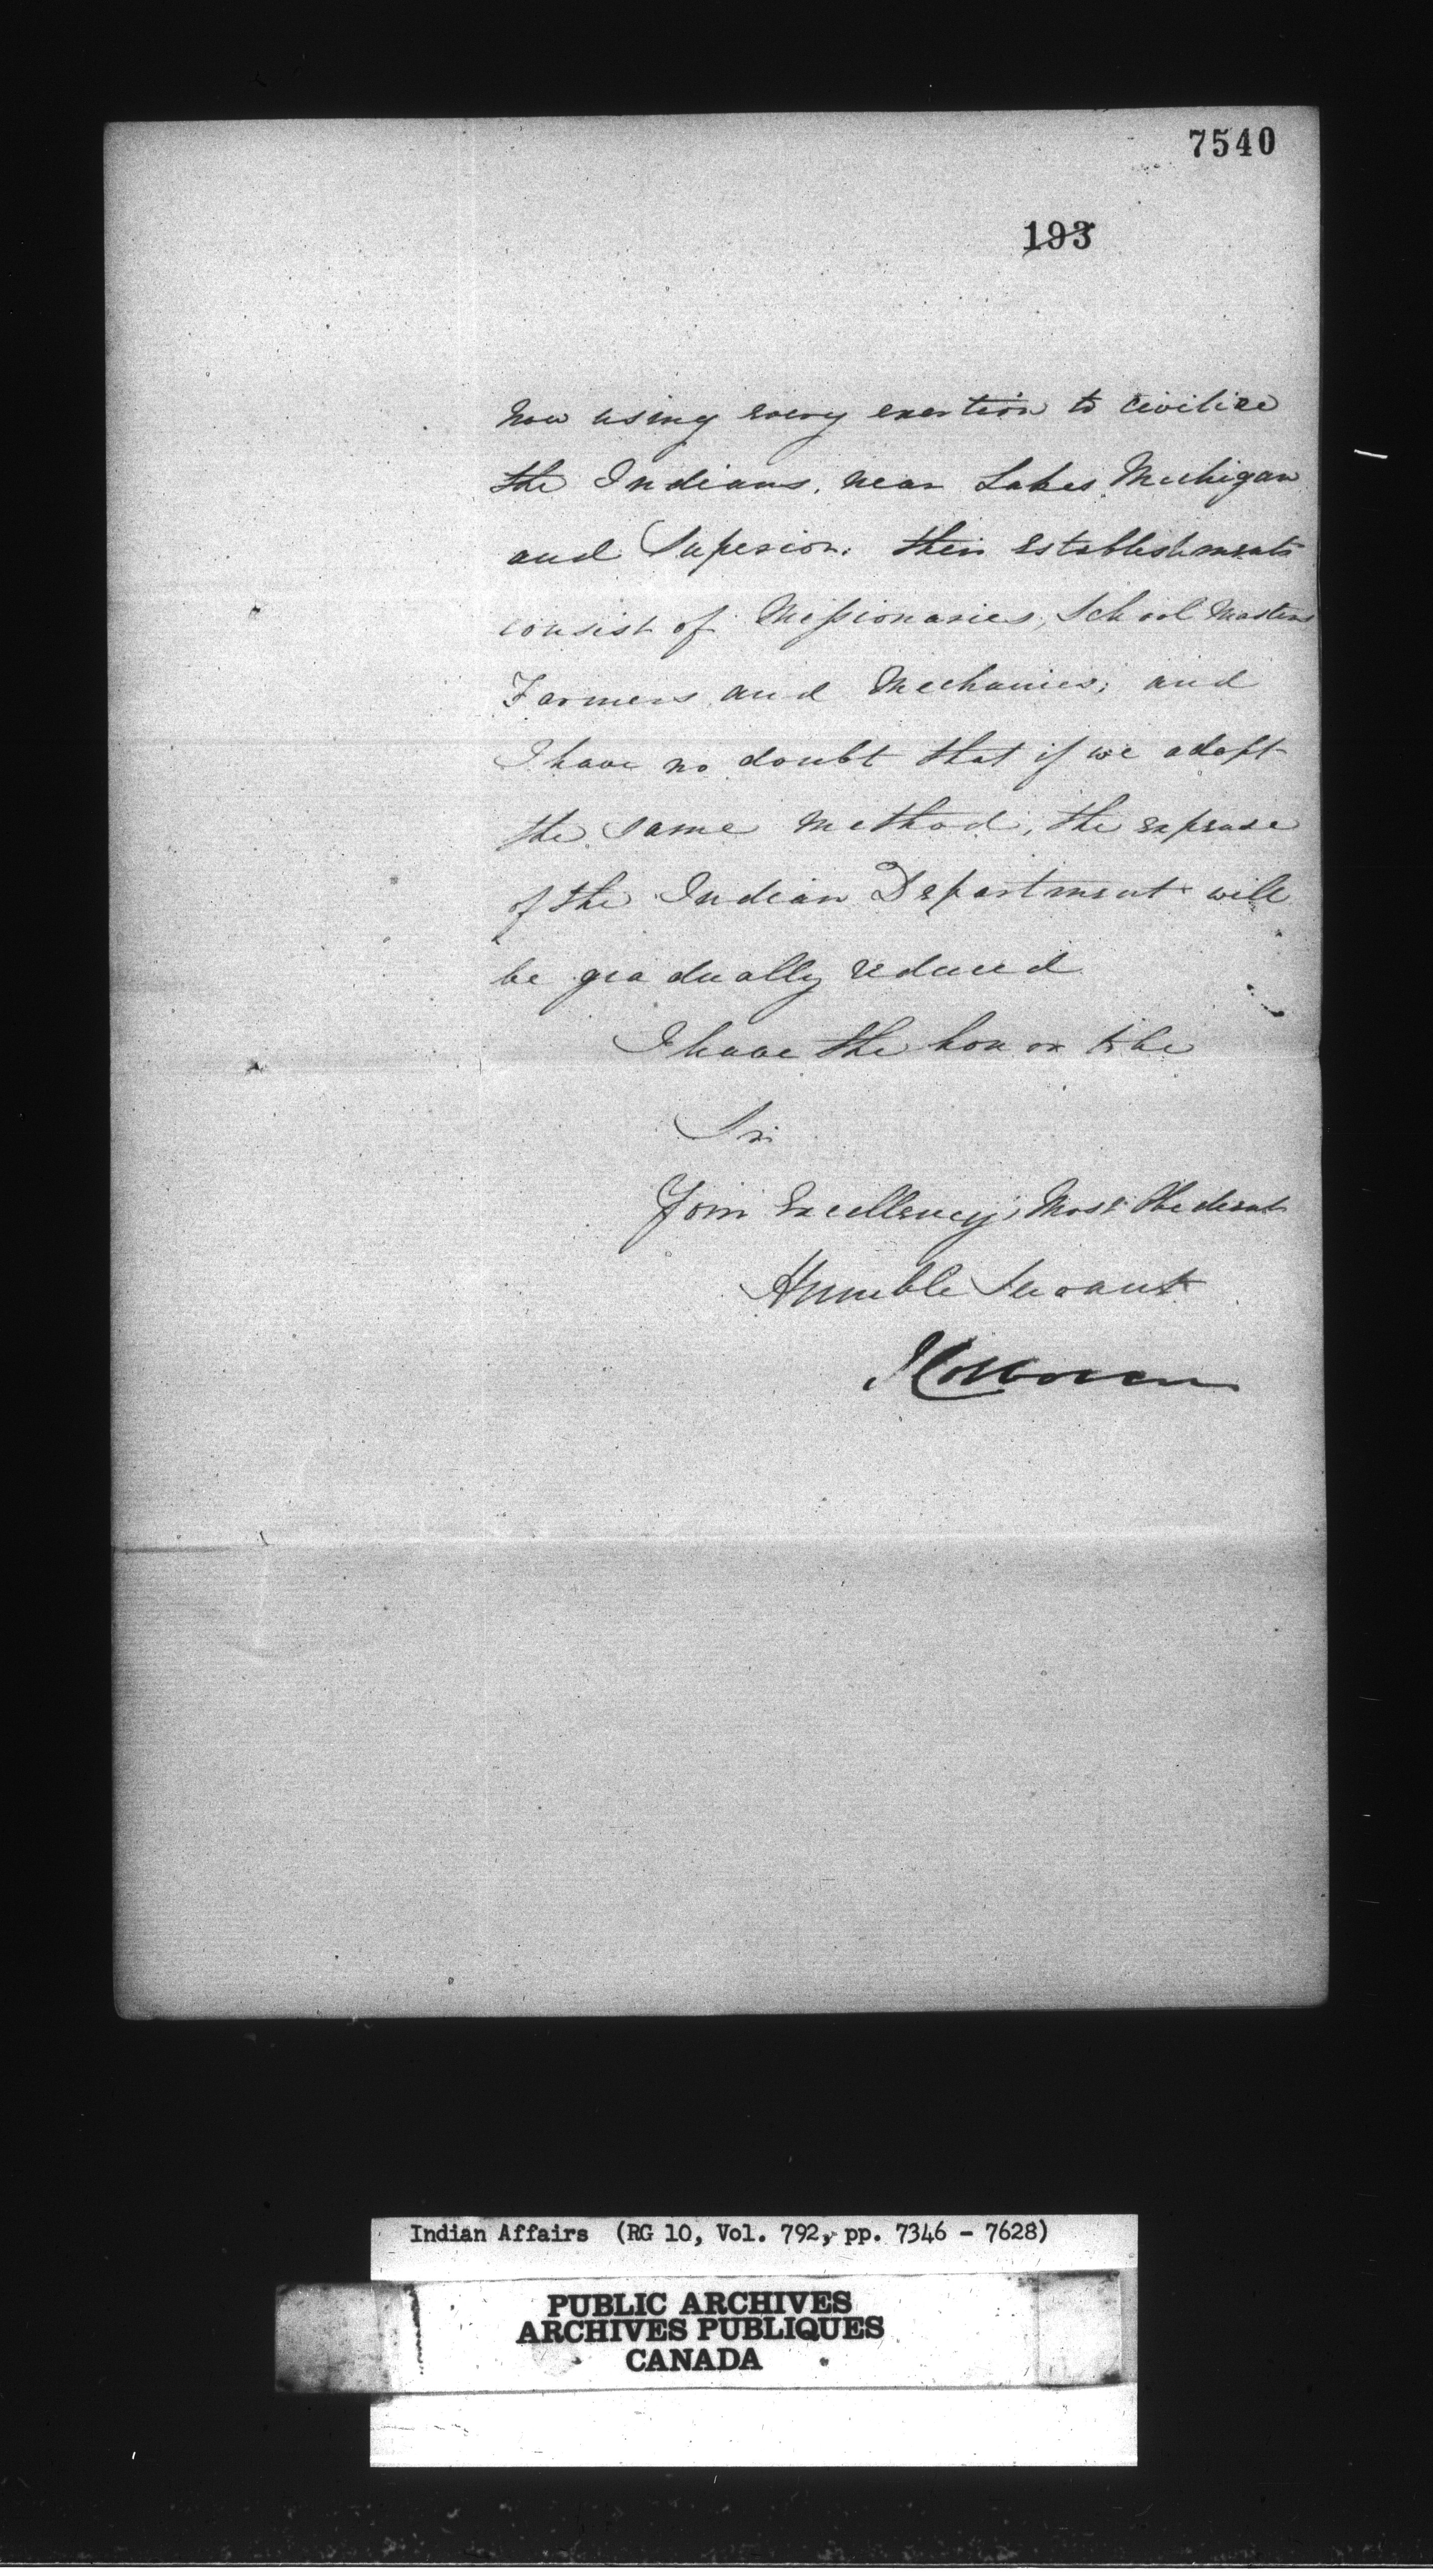 7540
193
now using every exertion to civilize
the Indians, near Lakes Michigan
and Superior. their establishments
consist of Missionaries, School Masters
Farmers and Mechanics; and
I have no doubt that if we adopt
the same method, the expense
of the Indian Department will
be gradually reduced
I have the honor to be
Sir
Your Excellency's Most Obedient
Humble Servant
J Colborne
Indian Affairs (RG 10, Vol. 792, pp. 7346 - 7628)
PUBLIC ARCHIVES
ARCHIVES PUBLIQUES
CANADA